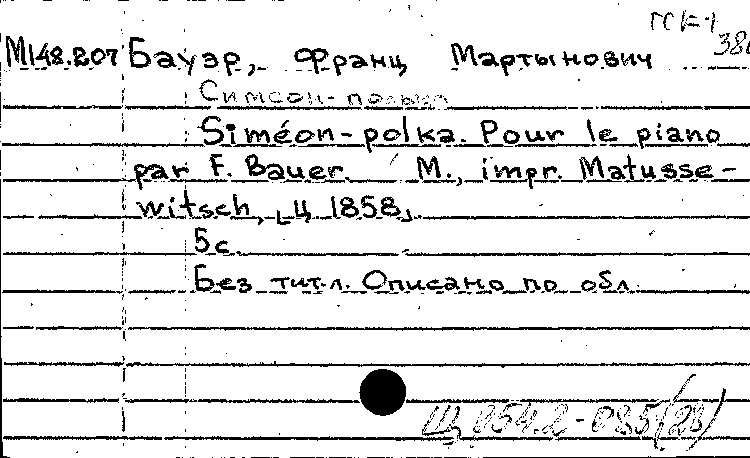 ГСК-1
380
М148.207 Бауэр, Франц Мартынович
Симеон-полька
Siméon-polka. Pour le piano
par F. Bauer. М., impr. Matusse-
witsch, [Ц 1858].
5с.
Без тит.л. Описано по обл.
Щ 054.2-035(23)